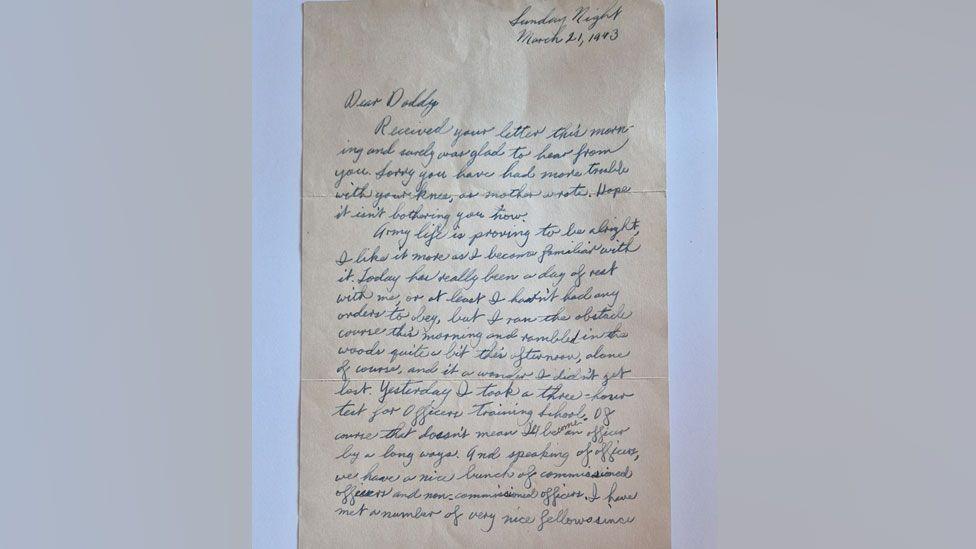 Sunday Night
March 21, 1943
Dear Daddy
Received your letter this morn-
ing and surely was glad to hear from
you. Sorry you have had more trouble
with your knee, as mother wrote. Hope
it isn't bothering you now.
Army life is proving to be alright,
I like it more as I become familiar with
it. Today has really been a day of rest
with me, or at least I hadn't had any
orders to obey, but I ran the obstacle
course this morning and rambled in the
woods quite a bit this afternoon, alone
of course, and it a wonder I didn't get
lost. Yesterday I took a three-hour
test for Officers Training School. Of
course that doesn't mean I'll become an officer
by a long ways. And speaking of officers,
we have a nice bunch of commissioned
officers and non-commissioned officers. I have
met a number of very nice fellows since